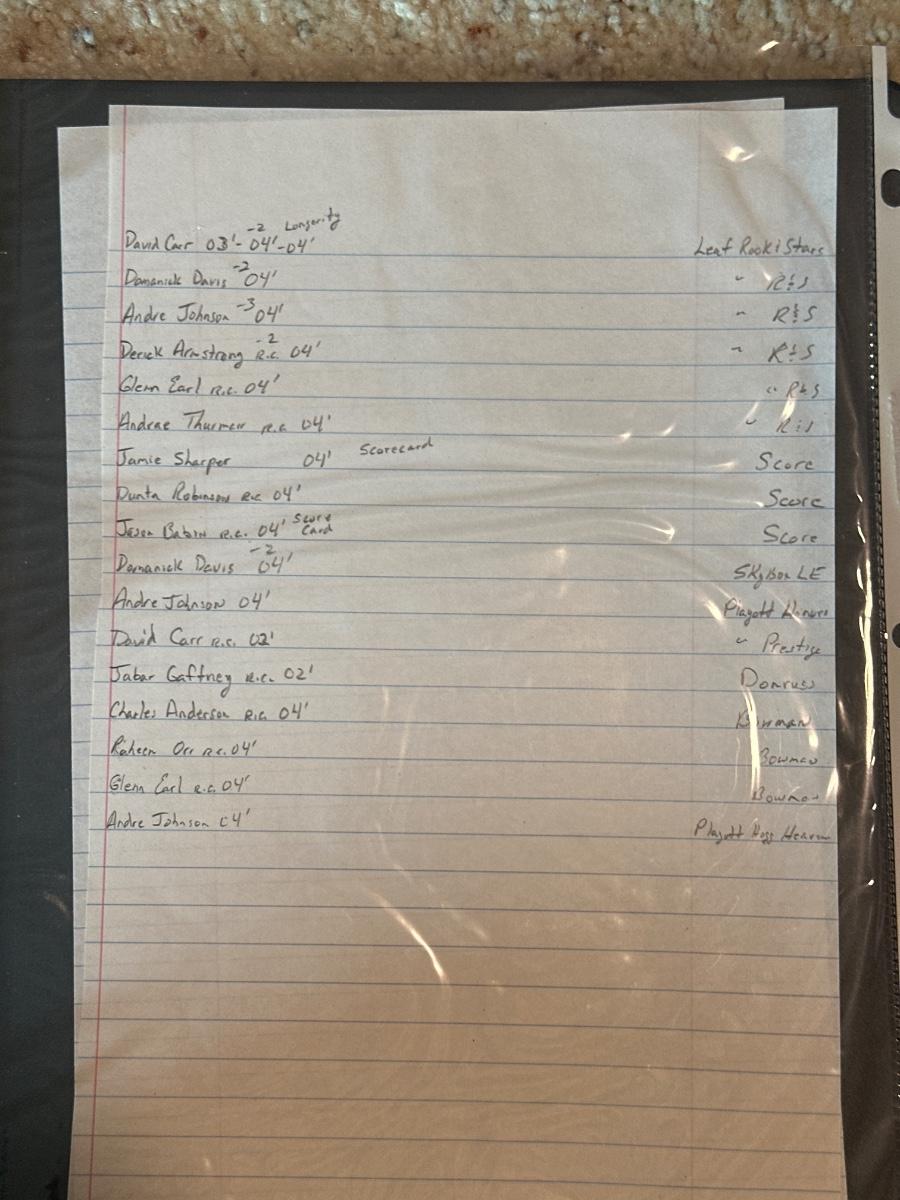 David Carr 03'- 04'-2 -04' Longevity Leaf Rook & Stars
Domanick Davis -2 04' " R&S
Andre Johnson -3 04' " R&S
Derick Armstrong R.C. -2 04' " R&S
Glenn Earl R.C. 04' " R&S
Andrae Thurman R.C. 04' " R&S
Jamie Sharper 04' Scorecard Score
Dunta Robinson R.C. 04' Score
Jason Babin R.C. 04' Score Card Score
Domanick Davis -2 04' SkyBox LE
Andre Johnson 04' Playoff Honors
David Carr R.C. 02' " Prestige
Jabar Gaffney R.C. 02' Donruss
Charles Anderson R.C. 04' Bowman
Raheem Orr R.C. 04' Bowman
Glenn Earl R.C. 04' Bowman
Andre Johnson 04' Playoff Hogg Heaven